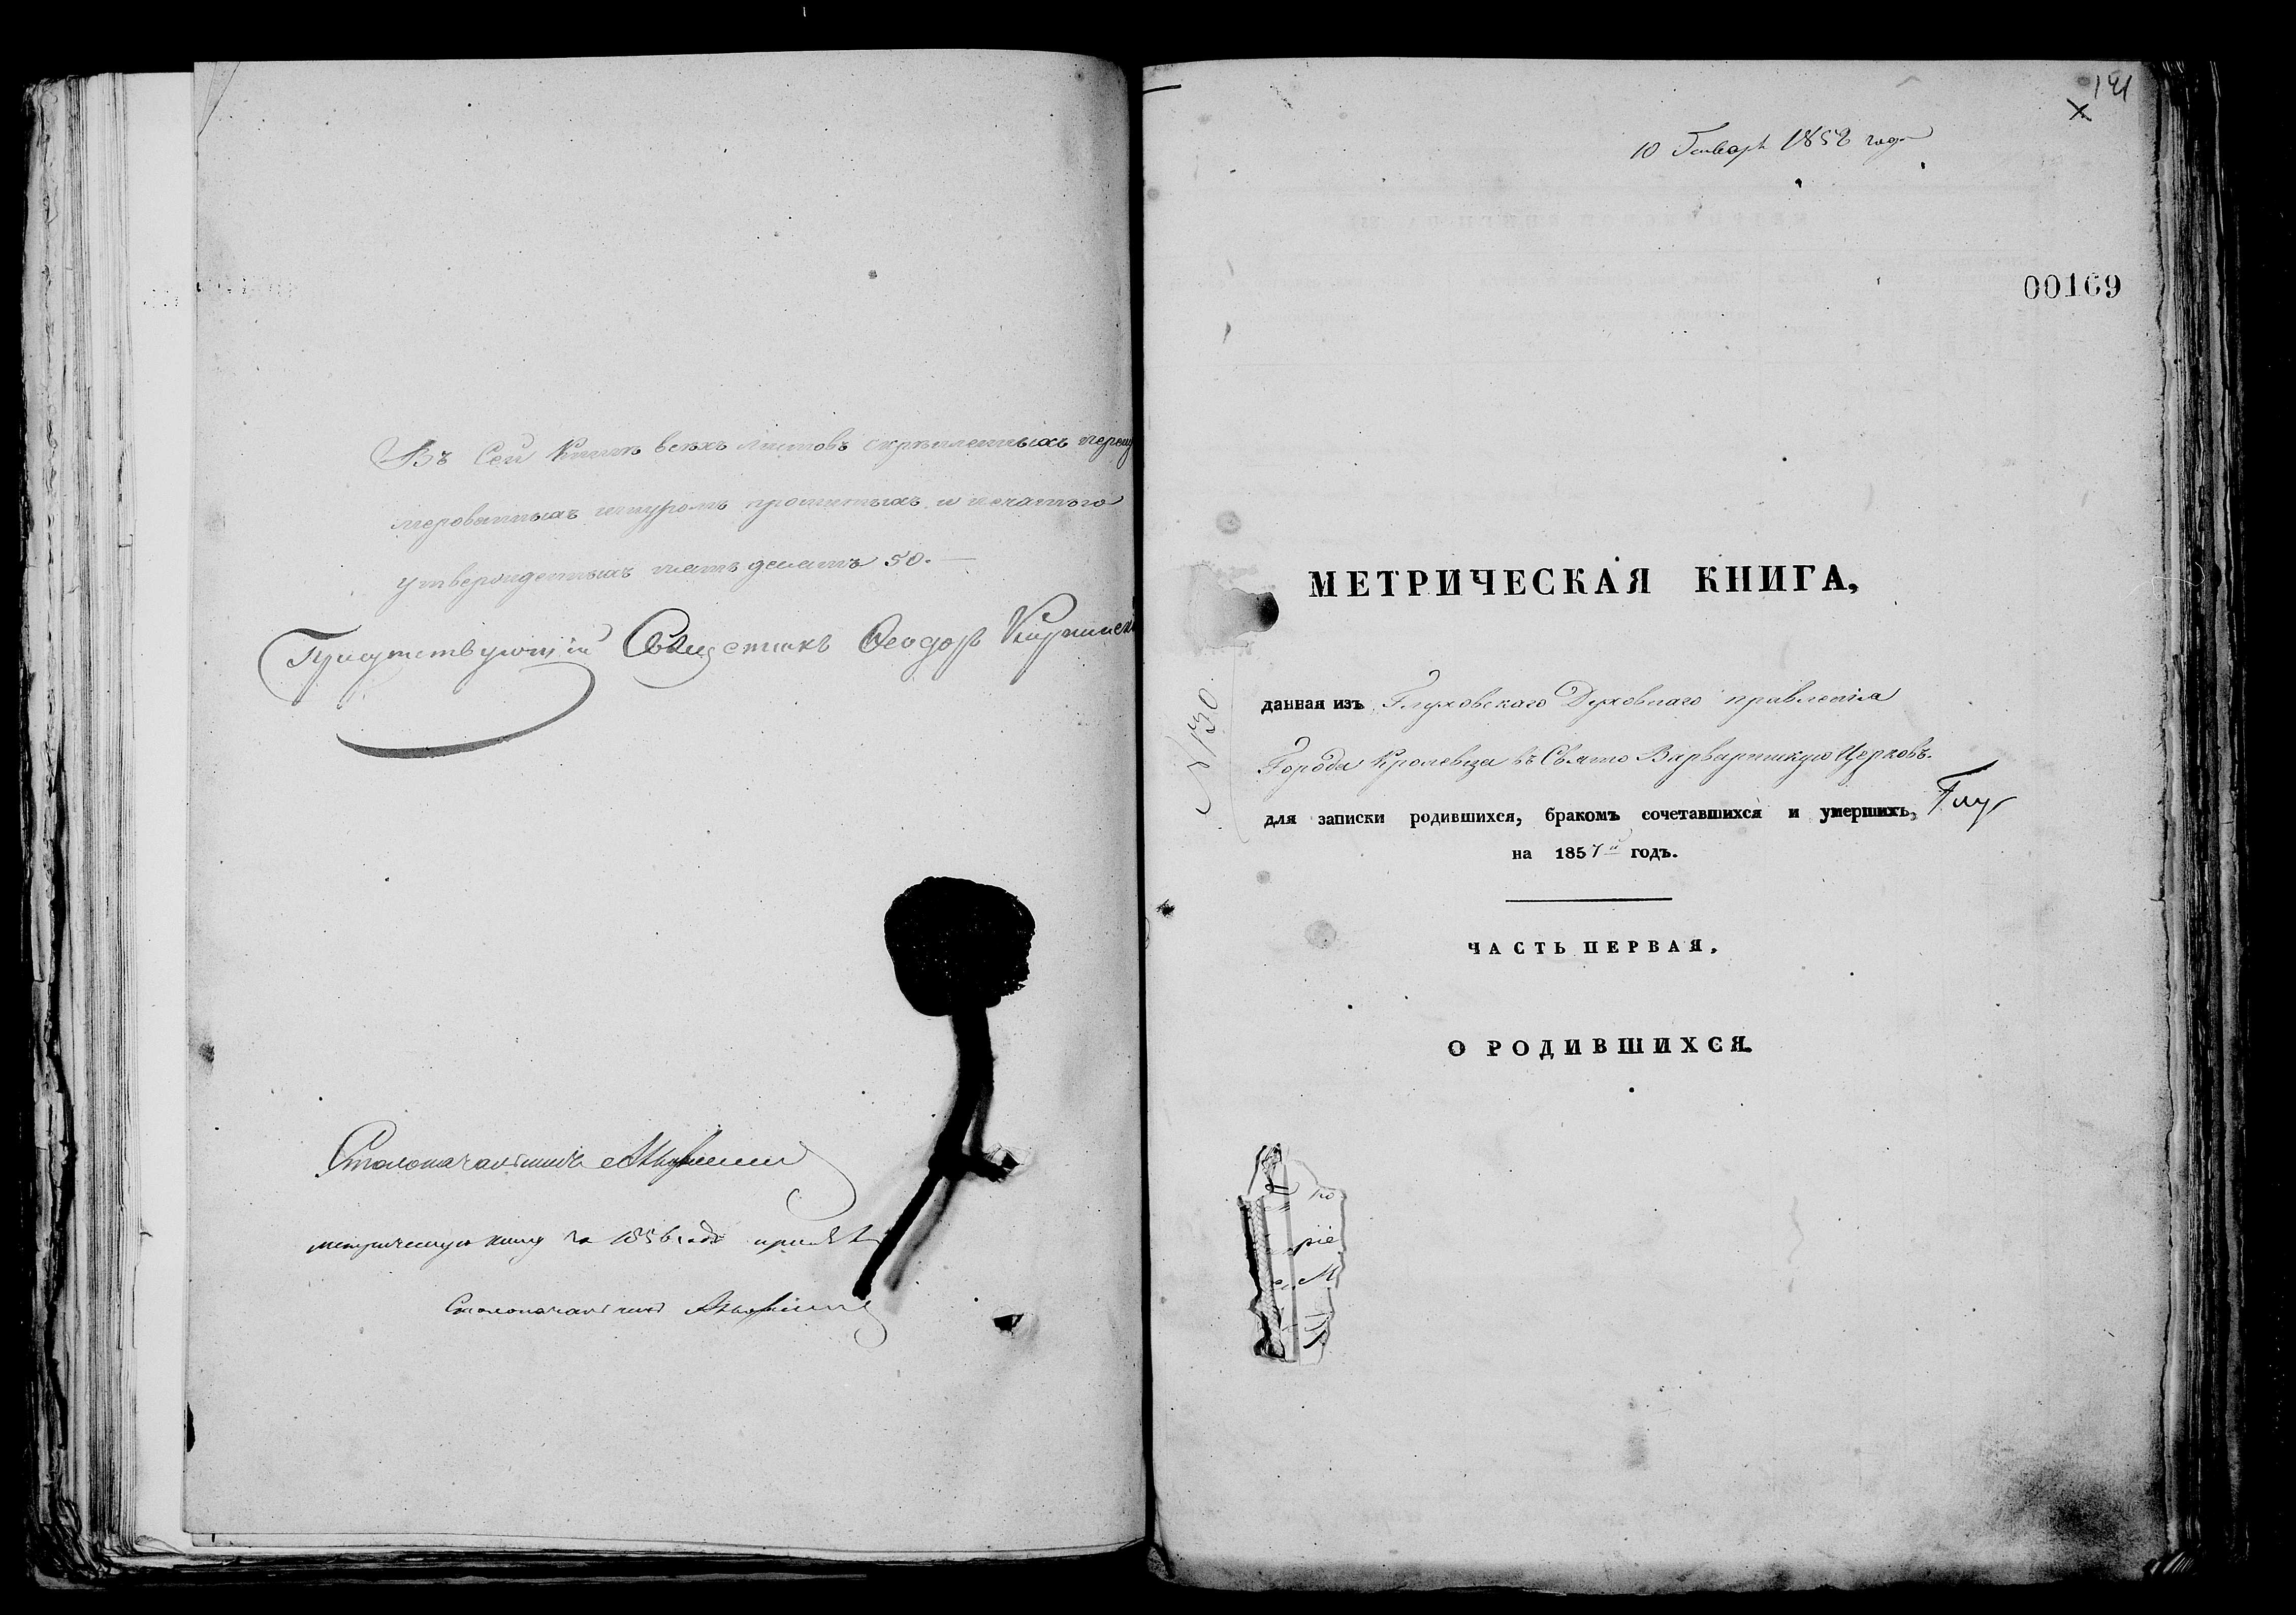 Въ Сей Книгѣ всѣхъ листовъ скрѣпленныхъ перену
мерованныхъ шнуромъ прошитыхъ и печатью
утвержденныхъ пятьдесятъ 50.—
Присутствующій Священникъ Ѳеодоръ
Столоначальникъ
метрическую книгу за 1856 годъ
Столоначальникъ
141
10 Генваря 1858 года
00169
МЕТРИЧЕСКАЯ КНИГА,
№ 30.
данная изъ Глуховскаго Духовнаго правленія
Города Кролевца въ Свято Варваринскую Церковь.
для записки родившихся, бракомъ сочетавшихся и умершихъ,
на 1857й годъ.
ЧАСТЬ ПЕРВАЯ.
О РОДИВШИХСЯ.